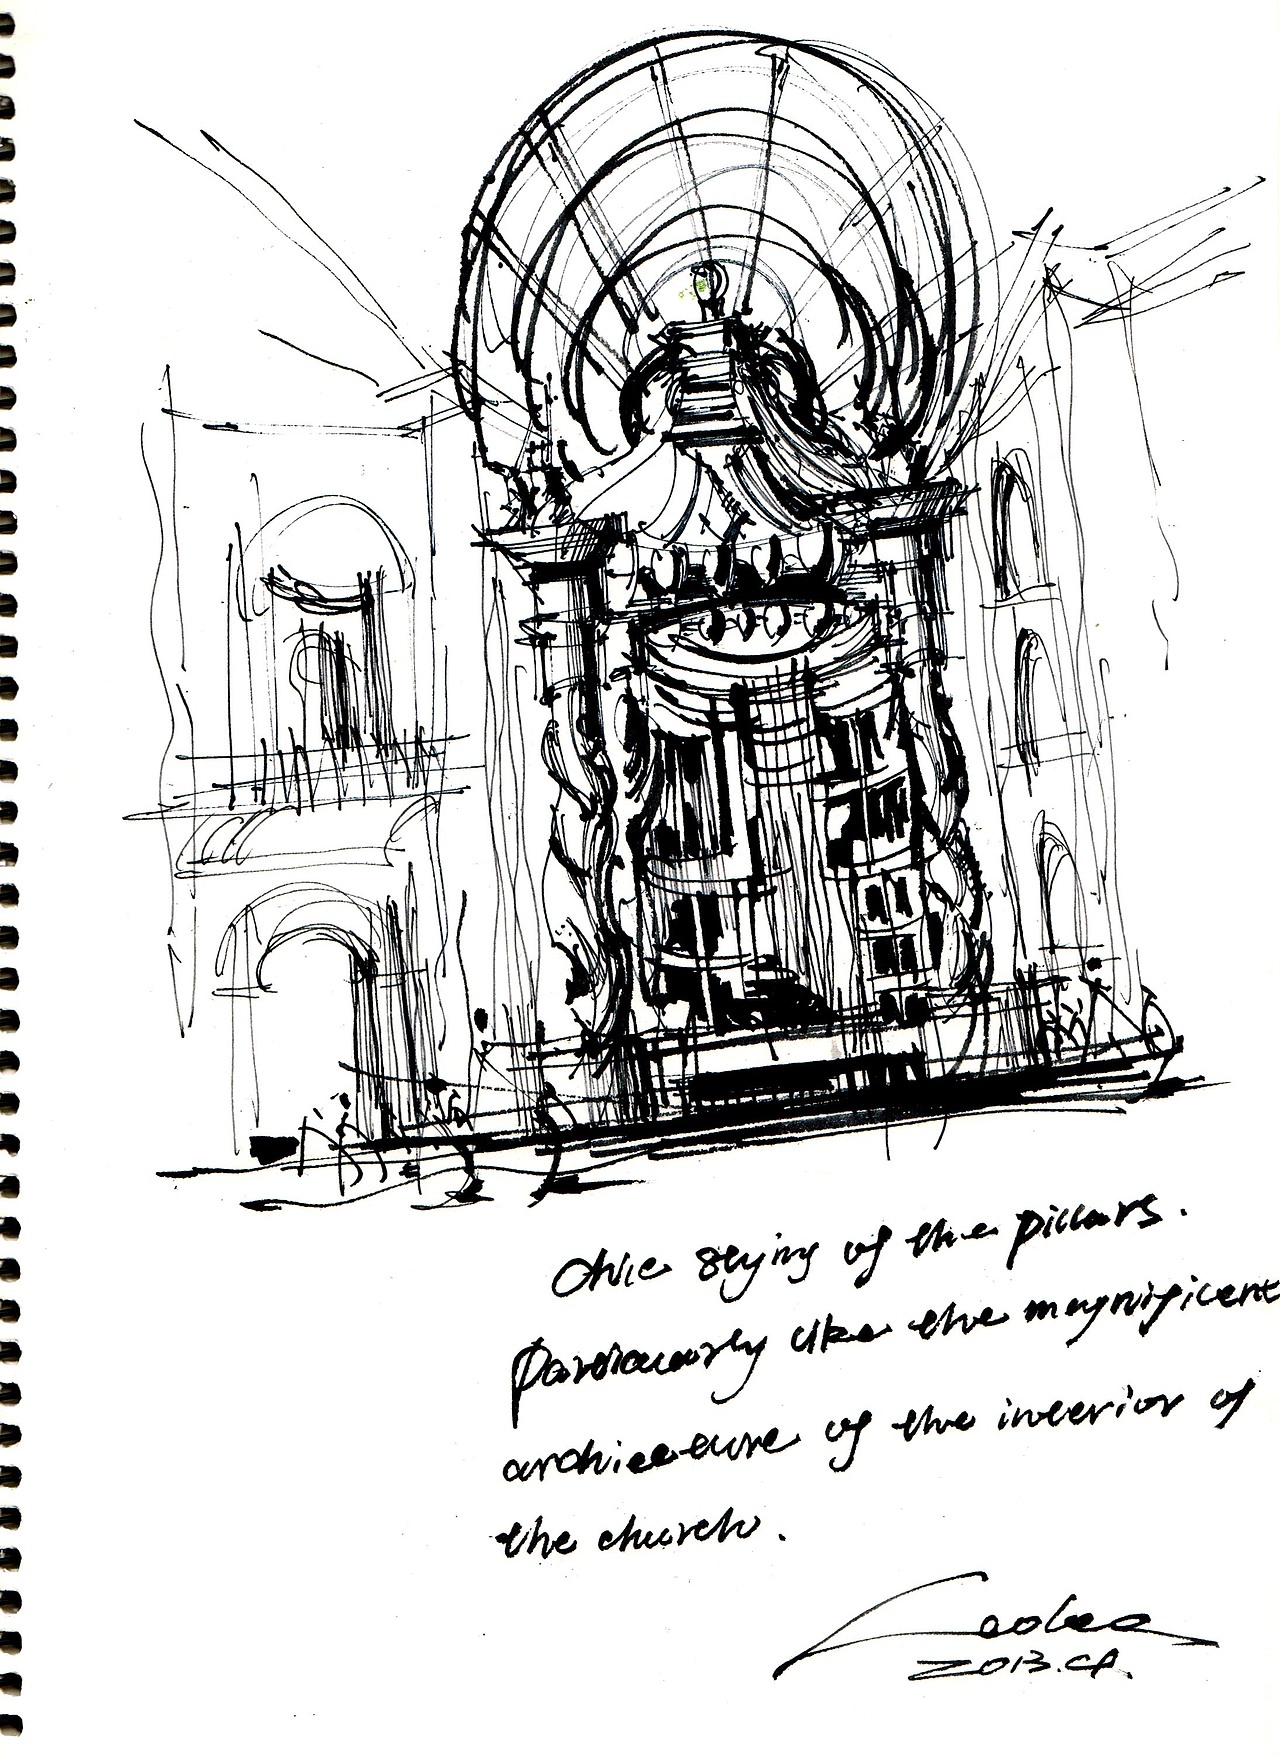 Chic stying of the pillars.
Particularly like the magnificent
architecture of the interior of
the church.
Leolee
2013.CA.